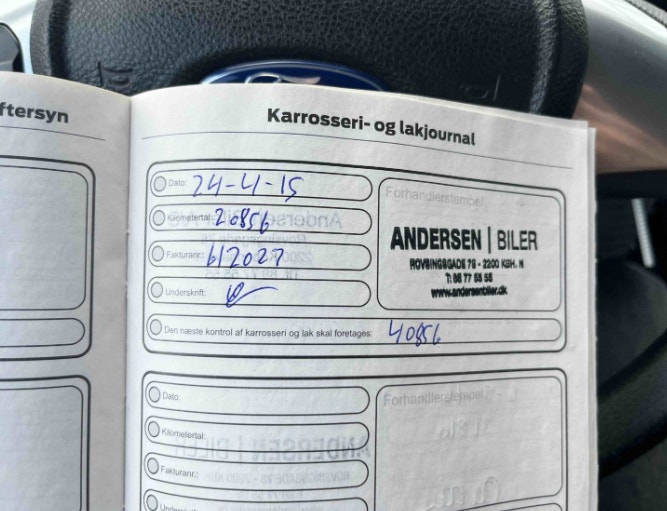 ftersyn
Karrosseri- og lakjournal
Dato: 24-4-15
Kilometertal: 20856
Fakturanr.: 612027
Underskrift:
Forhandlerstempel
ANDERSEN | BILER
ROVSINGSGADE 78 - 2200 KBH. N
www.andersenbiler.dk
Den næste kontrol af karrosseri og lak skal foretages: 40856
Dato:
Kilometertal:
Fakturanr.:
Underskrift:
Forhandlerstempel